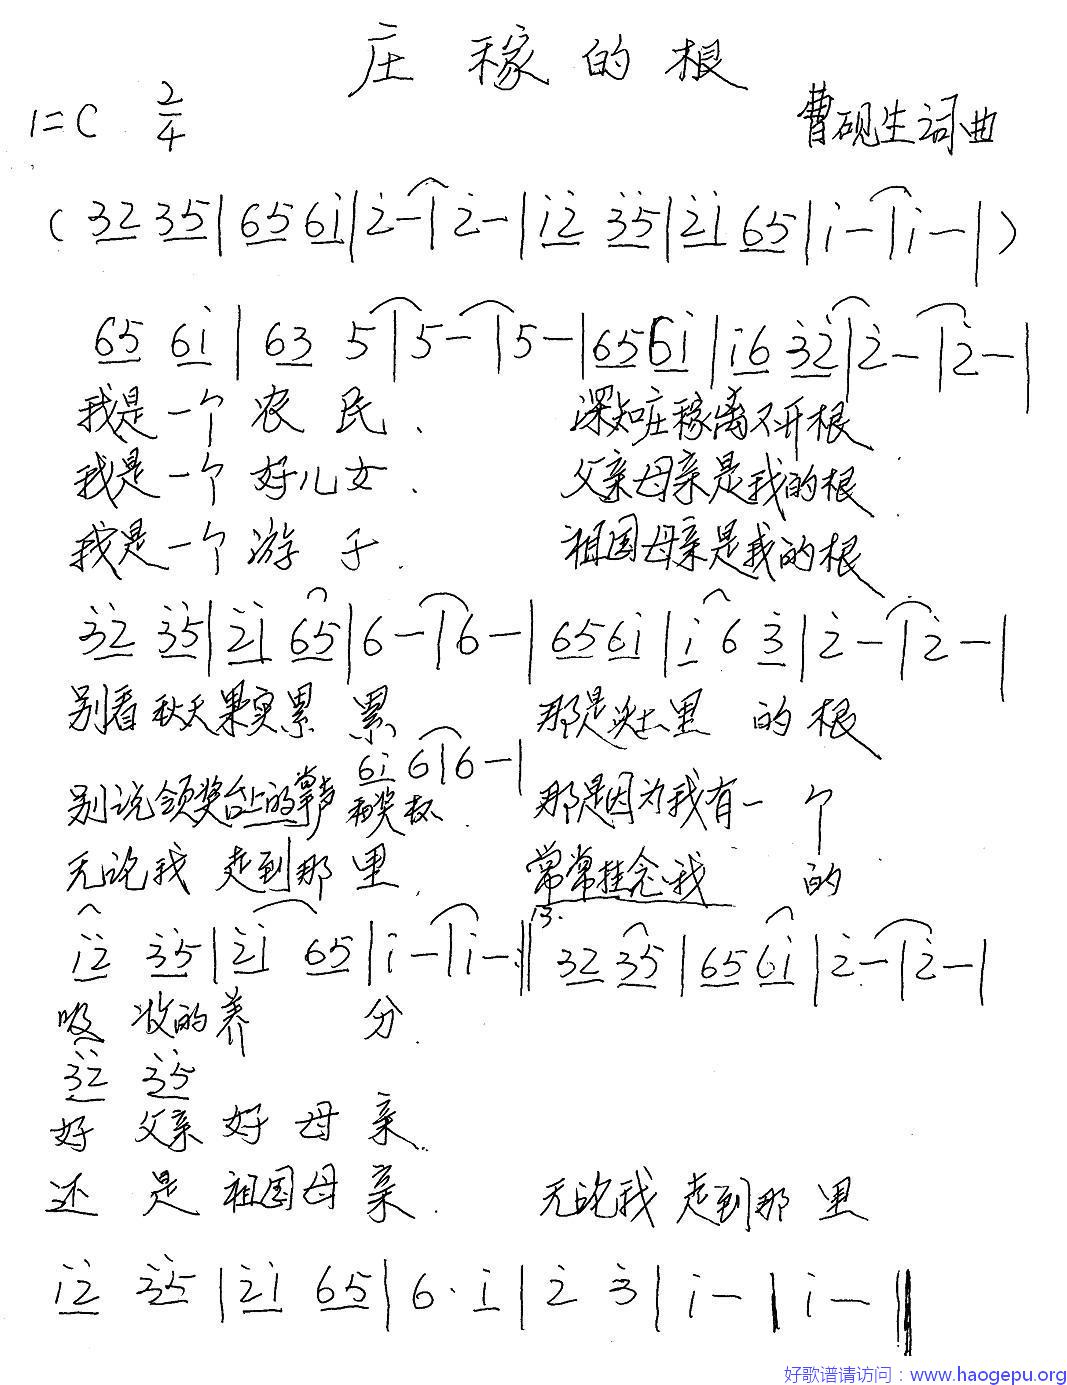 庄稼的根
1=C 2/4
曹砚生词曲
( 32 35 | 65 6i | 2̇ - | 2̇ - | i2̇ 3̇5̇ | 2̇i 65 | i - | i - | )
65 6i | 63 5 | 5 - | 5 - | 65 6i | i6 3̇2̇ | 2̇ - | 2̇ - |
我是一个农民. 深知庄稼离不开根
我是一个好儿女. 父亲母亲是我的根
我是一个游子. 祖国母亲是我的根
3̇2̇ 3̇5̇ | 2̇i 65 | 6 - | 6 - | 65 6i | i 6 3̇ | 2̇ - | 2̇ - |
别看秋天果实累累 那是土里的根
6i 6 | 6 - |
别说领奖台上的掌声和奖杯. 那是因为我有一个
无论我走到那里. 常常挂念我的
i2̇ 3̇5̇ | 2̇i 65 | i - | i - :‖ 13. 32 35 | 65 6i | 2̇ - | 2̇ - |
吸收的养分.
3̇2̇ 3̇5̇
好父亲好母亲.
还是祖国母亲. 无论我走到那里
i2̇ 3̇5̇ | 2̇i 65 | 6· i | 2̇ 3̇ | i - | i - ‖
好歌谱请访问：www.haogepu.org